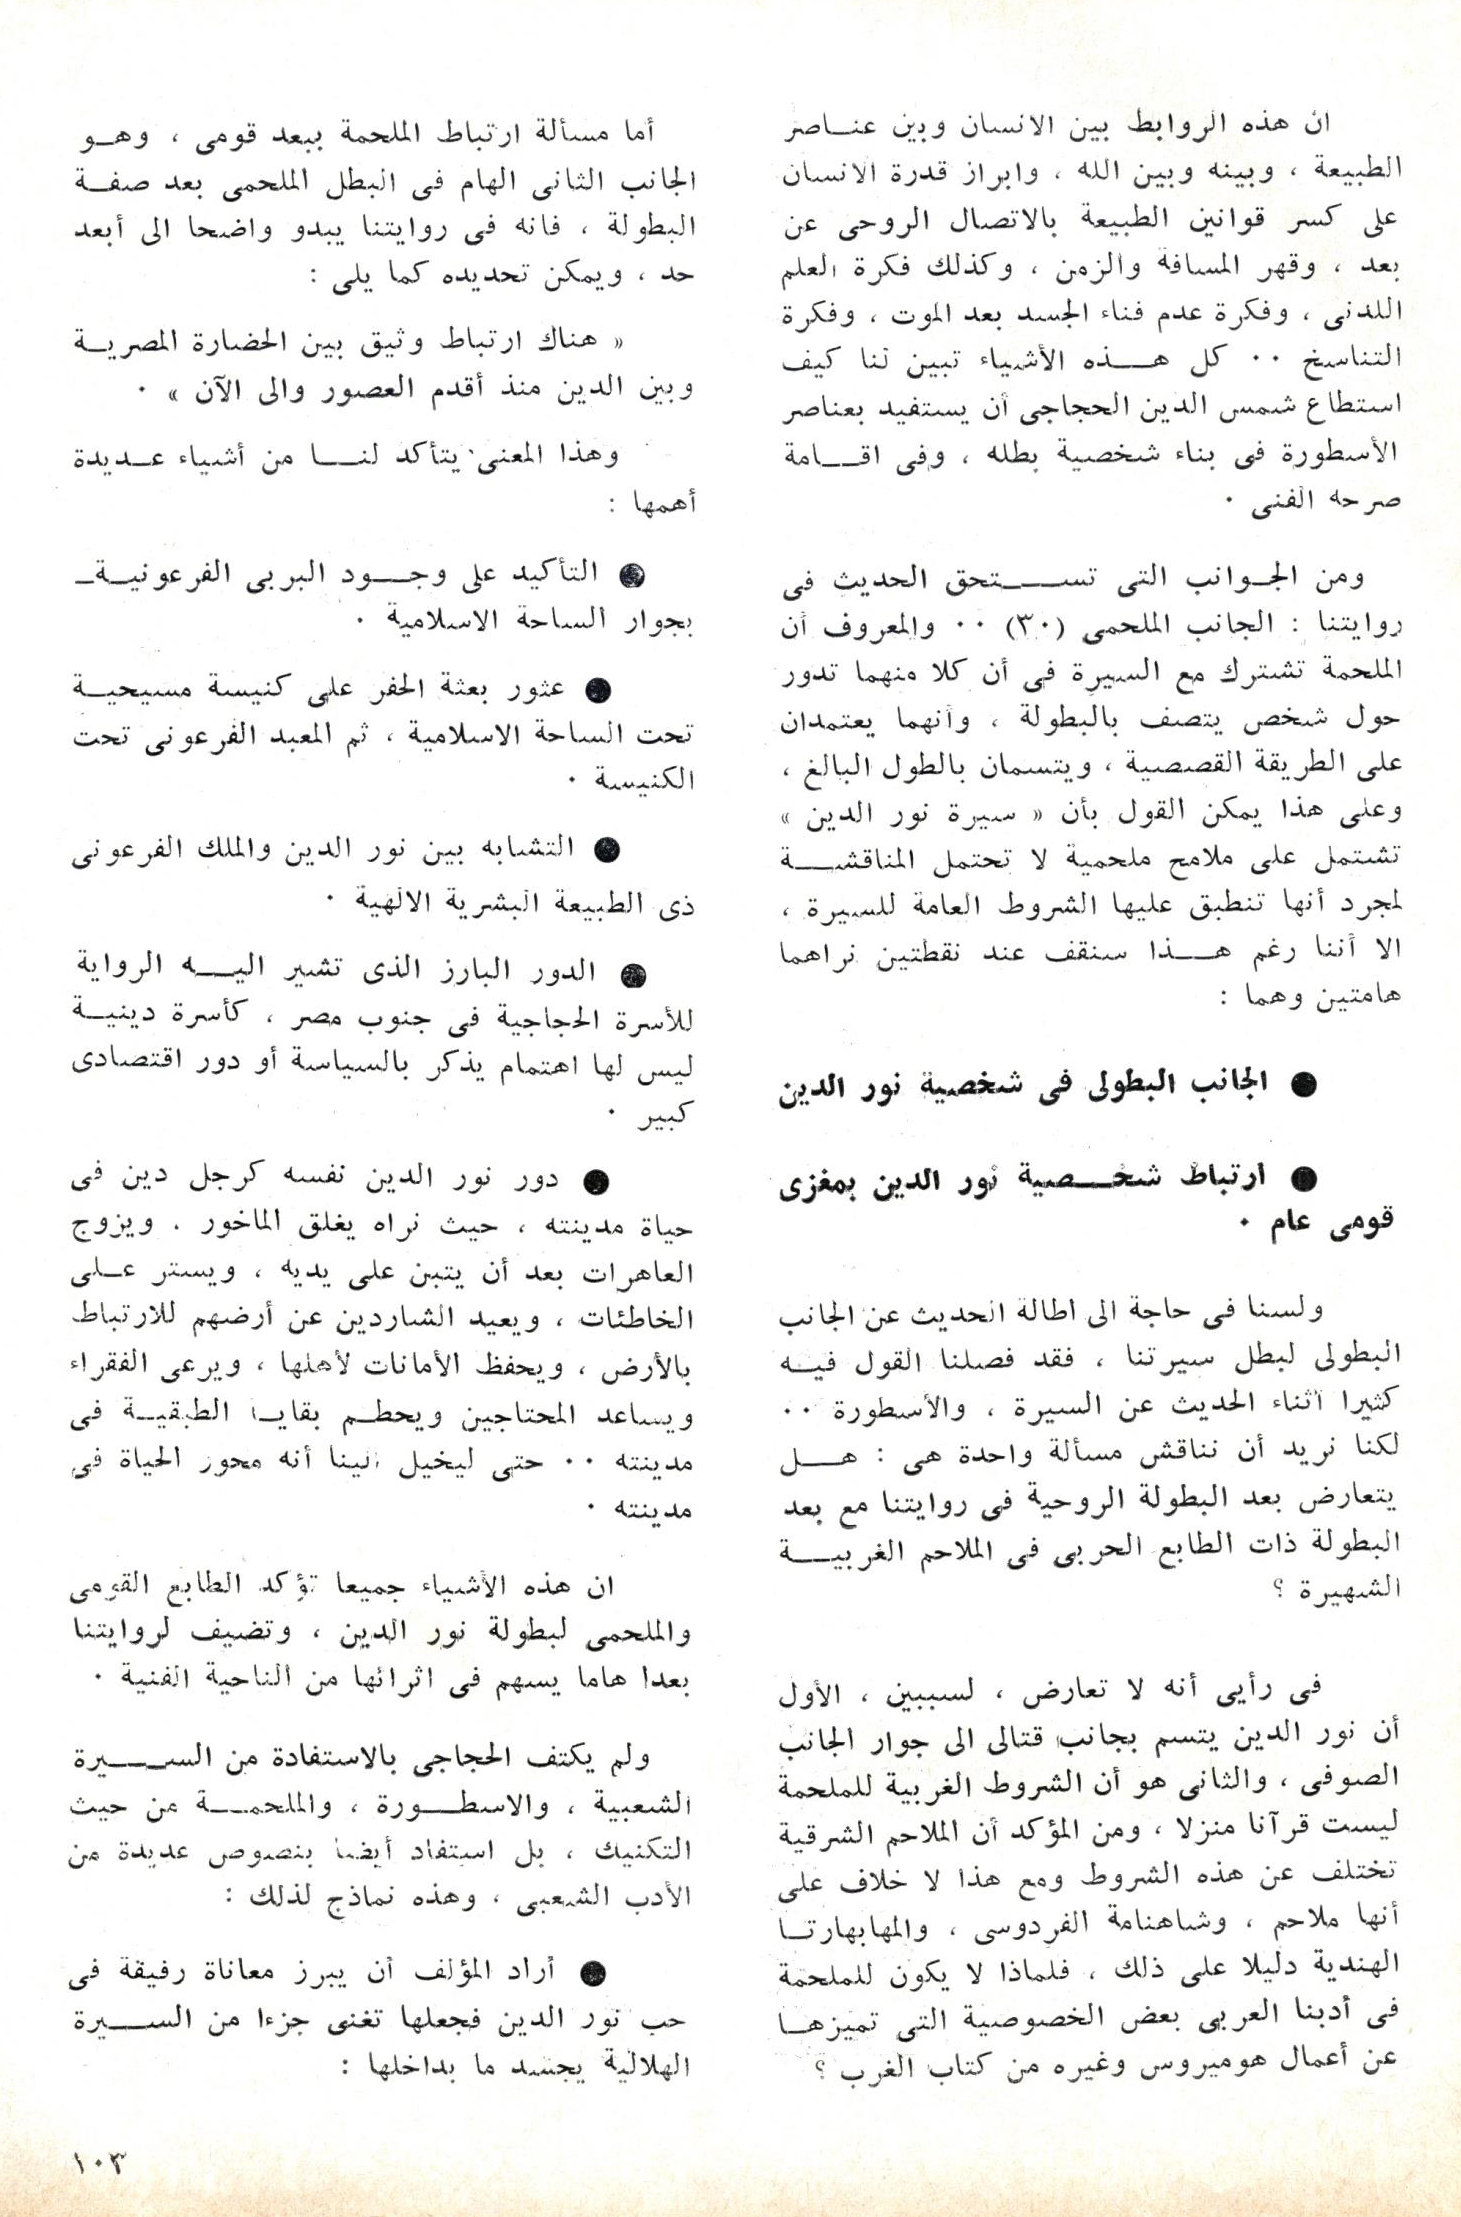 ان هذه الروابط بين الانسان وبين عناصر
الطبيعة ، وبينه وبين الله ، وابراز قدرة الانسان
على كسر قوانين الطبيعة بالاتصال الروحى عن
بعد ، وقهر المسافة والزمن ، وكذلك فكرة العلم
اللدنى ، وفكرة عدم فناء الجسد بعد الموت ، وفكرة
التناسخ ٠٠ كل هذه الأشياء تبين لنا كيف
استطاع شمس الدين الحجاجى أن يستفيد بعناصر
الأسطورة فى بناء شخصية بطله ، وفى اقامة
صرحه الفنى ٠
ومن الجوانب التى تستحق الحديث فى
روايتنا : الجانب الملحمى (٣٠) ٠٠ والمعروف أن
الملحمة تشترك مع السيرة فى أن كلا منهما تدور
حول شخص يتصف بالبطولة ، وأنهما يعتمدان
على الطريقة القصصية ، ويتسمان بالطول البالغ ،
وعلى هذا يمكن القول بأن « سيرة نور الدين »
تشتمل على ملامح ملحمية لا تحتمل المناقشة
لمجرد أنها تنطبق عليها الشروط العامة للسيرة ،
الا أننا رغم هذا سنقف عند نقطتين نراهما
هامتين وهما :
● الجانب البطولى فى شخصية نور الدين
● ارتباط شخصية نور الدين بمغزى
قومى عام ٠
ولسنا فى حاجة الى اطالة الحديث عن الجانب
البطولى لبطل سيرتنا ، فقد فصلنا القول فيه
كثيرا أثناء الحديث عن السيرة ، والأسطورة ٠٠
لكنا نريد أن نناقش مسألة واحدة هى : هل
يتعارض بعد البطولة الروحية فى روايتنا مع بعد
البطولة ذات الطابع الحربى فى الملاحم الغربية
الشهيرة ؟
فى رأيى أنه لا تعارض ، لسببين ، الأول
أن نور الدين يتسم بجانب قتالى الى جوار الجانب
الصوفى ، والثانى هو أن الشروط الغربية للملحمة
ليست قرآنا منزلا ، ومن المؤكد أن الملاحم الشرقية
تختلف عن هذه الشروط ومع هذا لا خلاف على
أنها ملاحم ، وشاهنامة الفردوسى ، والمهابهارتا
الهندية دليلا على ذلك ، فلماذا لا يكون للملحمة
فى أدبنا العربى بعض الخصوصية التى تميزها
عن أعمال هوميروس وغيره من كتاب الغرب ؟
أما مسألة ارتباط الملحمة ببعد قومى ، وهو
الجانب الثانى الهام فى البطل الملحمى بعد صفة
البطولة ، فانه فى روايتنا يبدو واضحا الى أبعد
حد ، ويمكن تحديده كما يلى :
« هناك ارتباط وثيق بين الحضارة المصرية
وبين الدين منذ أقدم العصور والى الآن » ٠
وهذا المعنى يتأكد لنا من أشياء عديدة
أهمها :
● التأكيد على وجود البربى الفرعونية
بجوار الساحة الاسلامية ٠
● عثور بعثة الحفر على كنيسة مسيحية
تحت الساحة الاسلامية ، ثم المعبد الفرعونى تحت
الكنيسة ٠
● التشابه بين نور الدين والملك الفرعونى
ذى الطبيعة البشرية الالهية ٠
● الدور البارز الذى تشير اليه الرواية
للأسرة الحجاجية فى جنوب مصر ، كأسرة دينية
ليس لها اهتمام يذكر بالسياسة أو دور اقتصادى
كبير ٠
● دور نور الدين نفسه كرجل دين فى
حياة مدينته ، حيث نراه يغلق الماخور . ويزوج
العاهرات بعد أن يتبن على يديه ، ويستر على
الخاطئات ، ويعيد الشاردين عن أرضهم للارتباط
بالأرض ، ويحفظ الأمانات لأهلها ، ويرعى الفقراء
ويساعد المحتاجين ويحطم بقايا الطبقية فى
مدينته ٠٠ حتى ليخيل الينا أنه محور الحياة فى
مدينته ٠
ان هذه الأشياء جميعا تؤكد الطابع القومى
والملحمى لبطولة نور الدين ، وتضيف لروايتنا
بعدا هاما يسهم فى اثرائها من الناحية الفنية ٠
ولم يكتف الحجاجى بالاستفادة من السيرة
الشعبية ، والاسطورة ، والملحمة من حيث
التكنيك ، بل استفاد أيضا بنصوص عديدة من
الأدب الشعبى ، وهذه نماذج لذلك :
● أراد المؤلف أن يبرز معاناة رفيقة فى
حب نور الدين فجعلها تغنى جزءا من السيرة
الهلالية يجسد ما بداخلها :
١٠٣